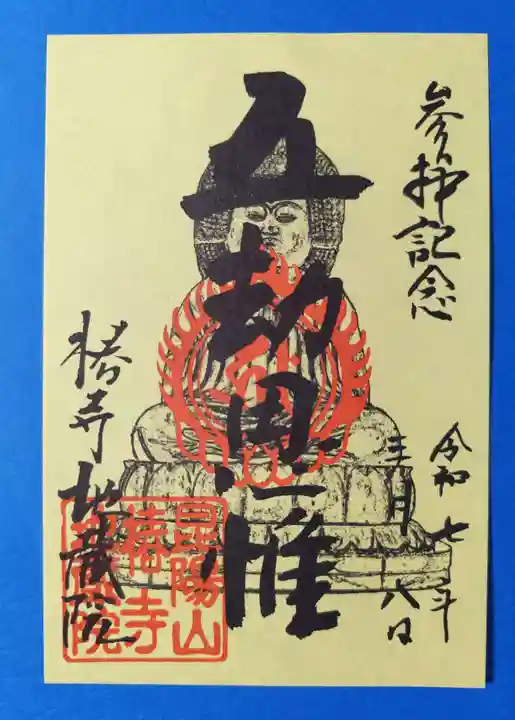 参拝記念
令和七年
三月
八日
五劫思惟
椿寺地蔵院
昆陽山
椿寺
地蔵院